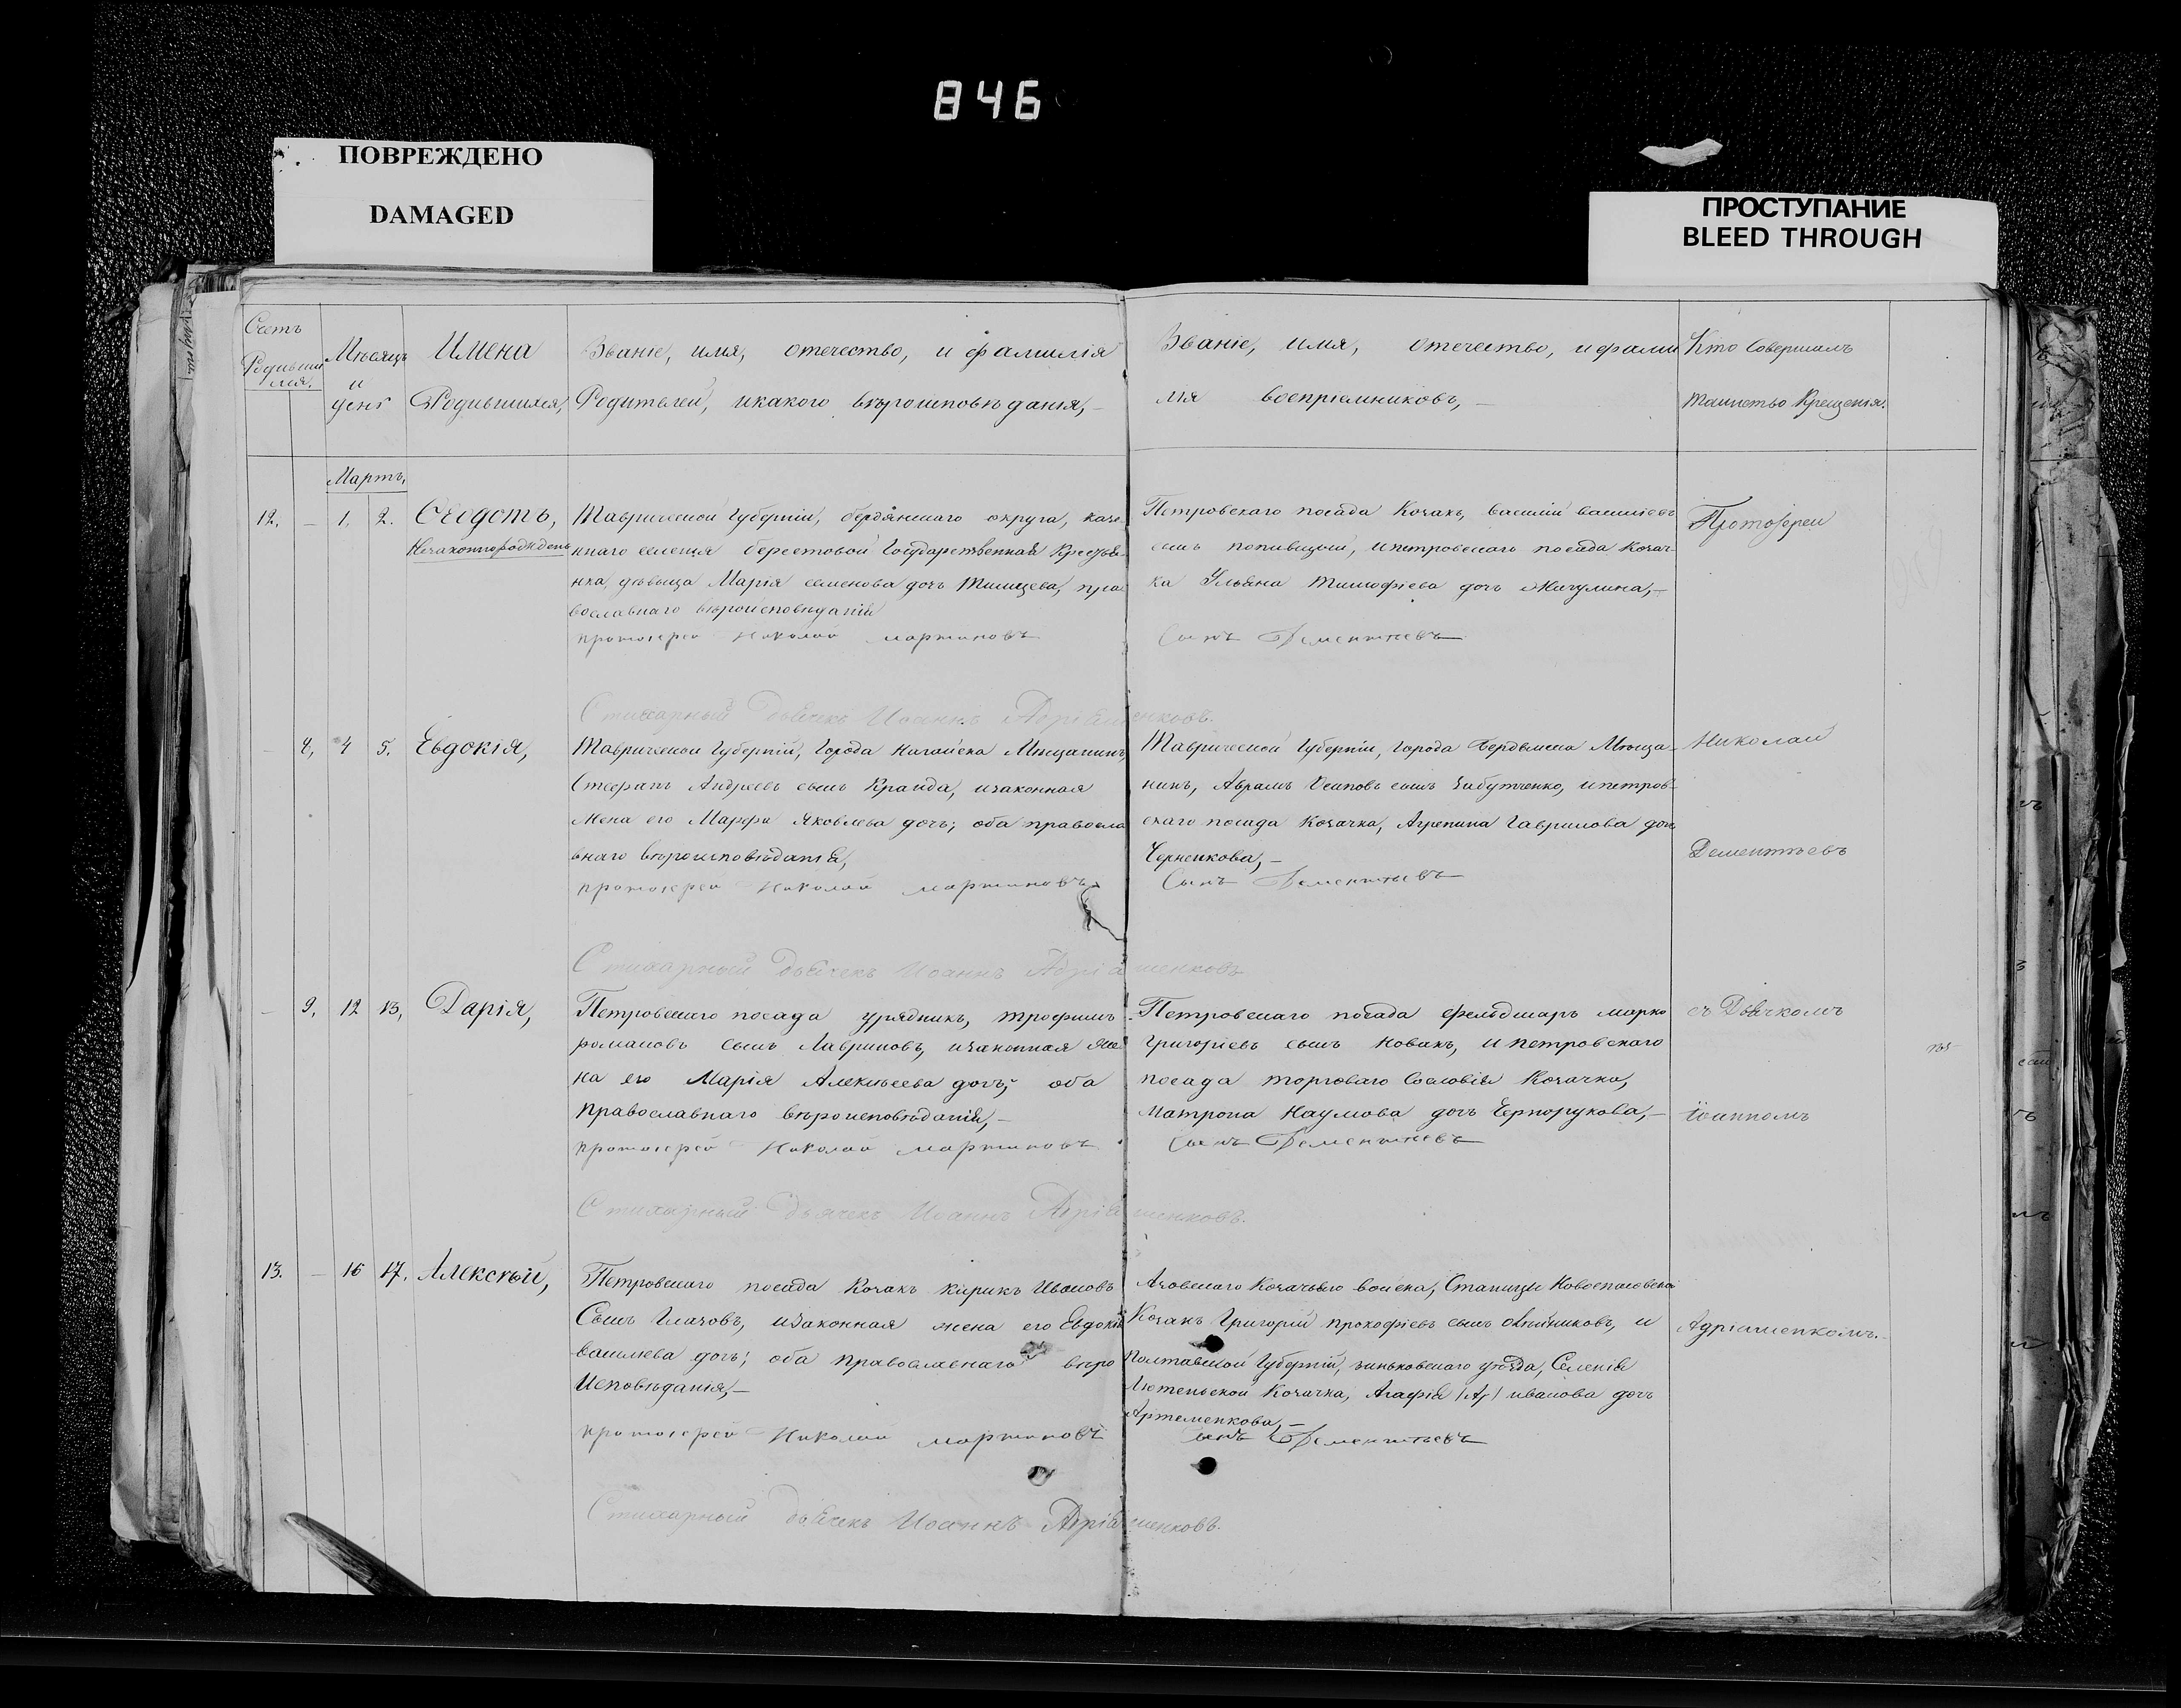 846
ПОВРЕЖДЕНО
DAMAGED
ПРОСТУПАНИЕ
BLEED THROUGH
Счетъ
Родивших
ся.
Мѣсяцъ
и
день
Имена
Родившихся,
Званіе, имя, отечество, и фамилія
Родителей, и какого вѣроисповѣданія, –
Званіе, имя, отечество, и фами
лія воспріемниковъ, –
Кто Совершалъ
таинство Крещенія.
Мартъ,
12. – 1, 2.
Ѳеодотъ,
Незаконнорожденъ
Таврической Губерніи, бердянскаго округа, казе
ннаго селенія берестовой Государственная Крестья
нка, дѣвица Марія семенова дочь, пра
вославнаго вѣроисповѣданія
протоіерей Николай мартиновъ
Стихарный дьячекъ Иоаннъ Адріяшенковъ.
Петровскаго посада Козакъ, василій васильевъ
сынъ, и петровскаго посада Козач
ка Ульяна Тимофіева дочь Жигулина, –
Сынъ Дементьевъ
Протоіерей
– 8, 4 5.
Евдокія,
Таврической Губерніи, Города Нагайска Мѣщанинъ,
Стефанъ Андреевъ сынъ Кранда, и законная
жена его Марфа Яковлева дочь; оба правосла
внаго вѣроисповѣданія,
протоіерей Николай мартиновъ
Стихарный дьячекъ Иоаннъ Адріяшенковъ
Таврической Губерніи, города Бердянска Мѣща
нинъ, Аврамъ Осиповъ сынъ, и петров
скаго посада Козачка, Агрепина Гаврилова дочь
Черненкова, –
Сынъ Дементьевъ
Николай
Дементьевъ
– 9, 12 13,
Дарія,
Петровскаго посада урядникъ, трофимъ
романовъ сынъ Лавриновъ, и законная же
на его Марія Алексѣева дочь; оба
православнаго вѣроисповѣданія, –
протоіерей Николай мартиновъ
Стихарный дьячекъ Иоаннъ Адріяшенковъ.
Петровскаго посада фельдшаръ марко
Григоріевъ сынъ новакъ, и петровскаго
посада торговаго Сословія Козачка,
матрона Наумова дочь Чернорукова, –
Сынъ Дементьевъ
съ Дьячкомъ
іоанномъ
13. – 16 17.
Алексѣй,
Петровскаго посада Козакъ Кирикъ Ивановъ
Сынъ Глазовъ, и законная жена его Евдокія
васильева дочь; оба православнаго вѣро
Исповѣданія, –
протоіерей Николай мартиновъ
Стихарный дьячекъ Иоаннъ Адріяшенковъ.
Азовскаго Козачьяго войска, Станицы Новоспасовской
Козакъ Григорій прокофіевъ сынъ, и
Полтавской Губерніи, зиньковскаго уѣзда, Селенія
Лютенской Козачка, Агафія (Аг) иванова дочь
Артеменкова, –
Сынъ Дементьевъ
Адріашенкомъ.